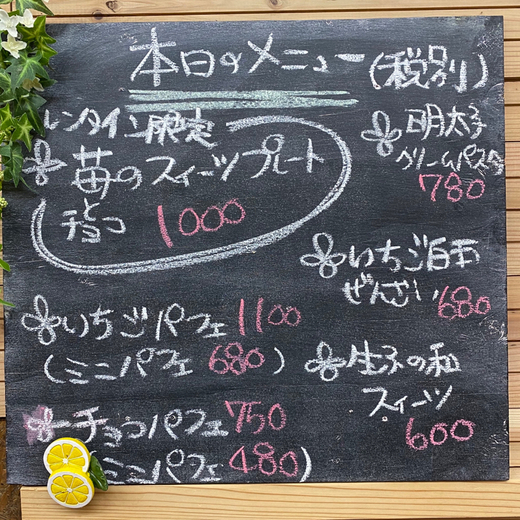 本日のメニュー (税別)
レンタイン限定
苺のスイーツプレート
チョコと
1000
いちごパフェ 1100
(ミニパフェ 680)
チョコパフェ 750
ミニパフェ 480)
明太子
クリームパスタ
780
いちご白玉
ぜんざい 680
生ふの和
スイーツ
600